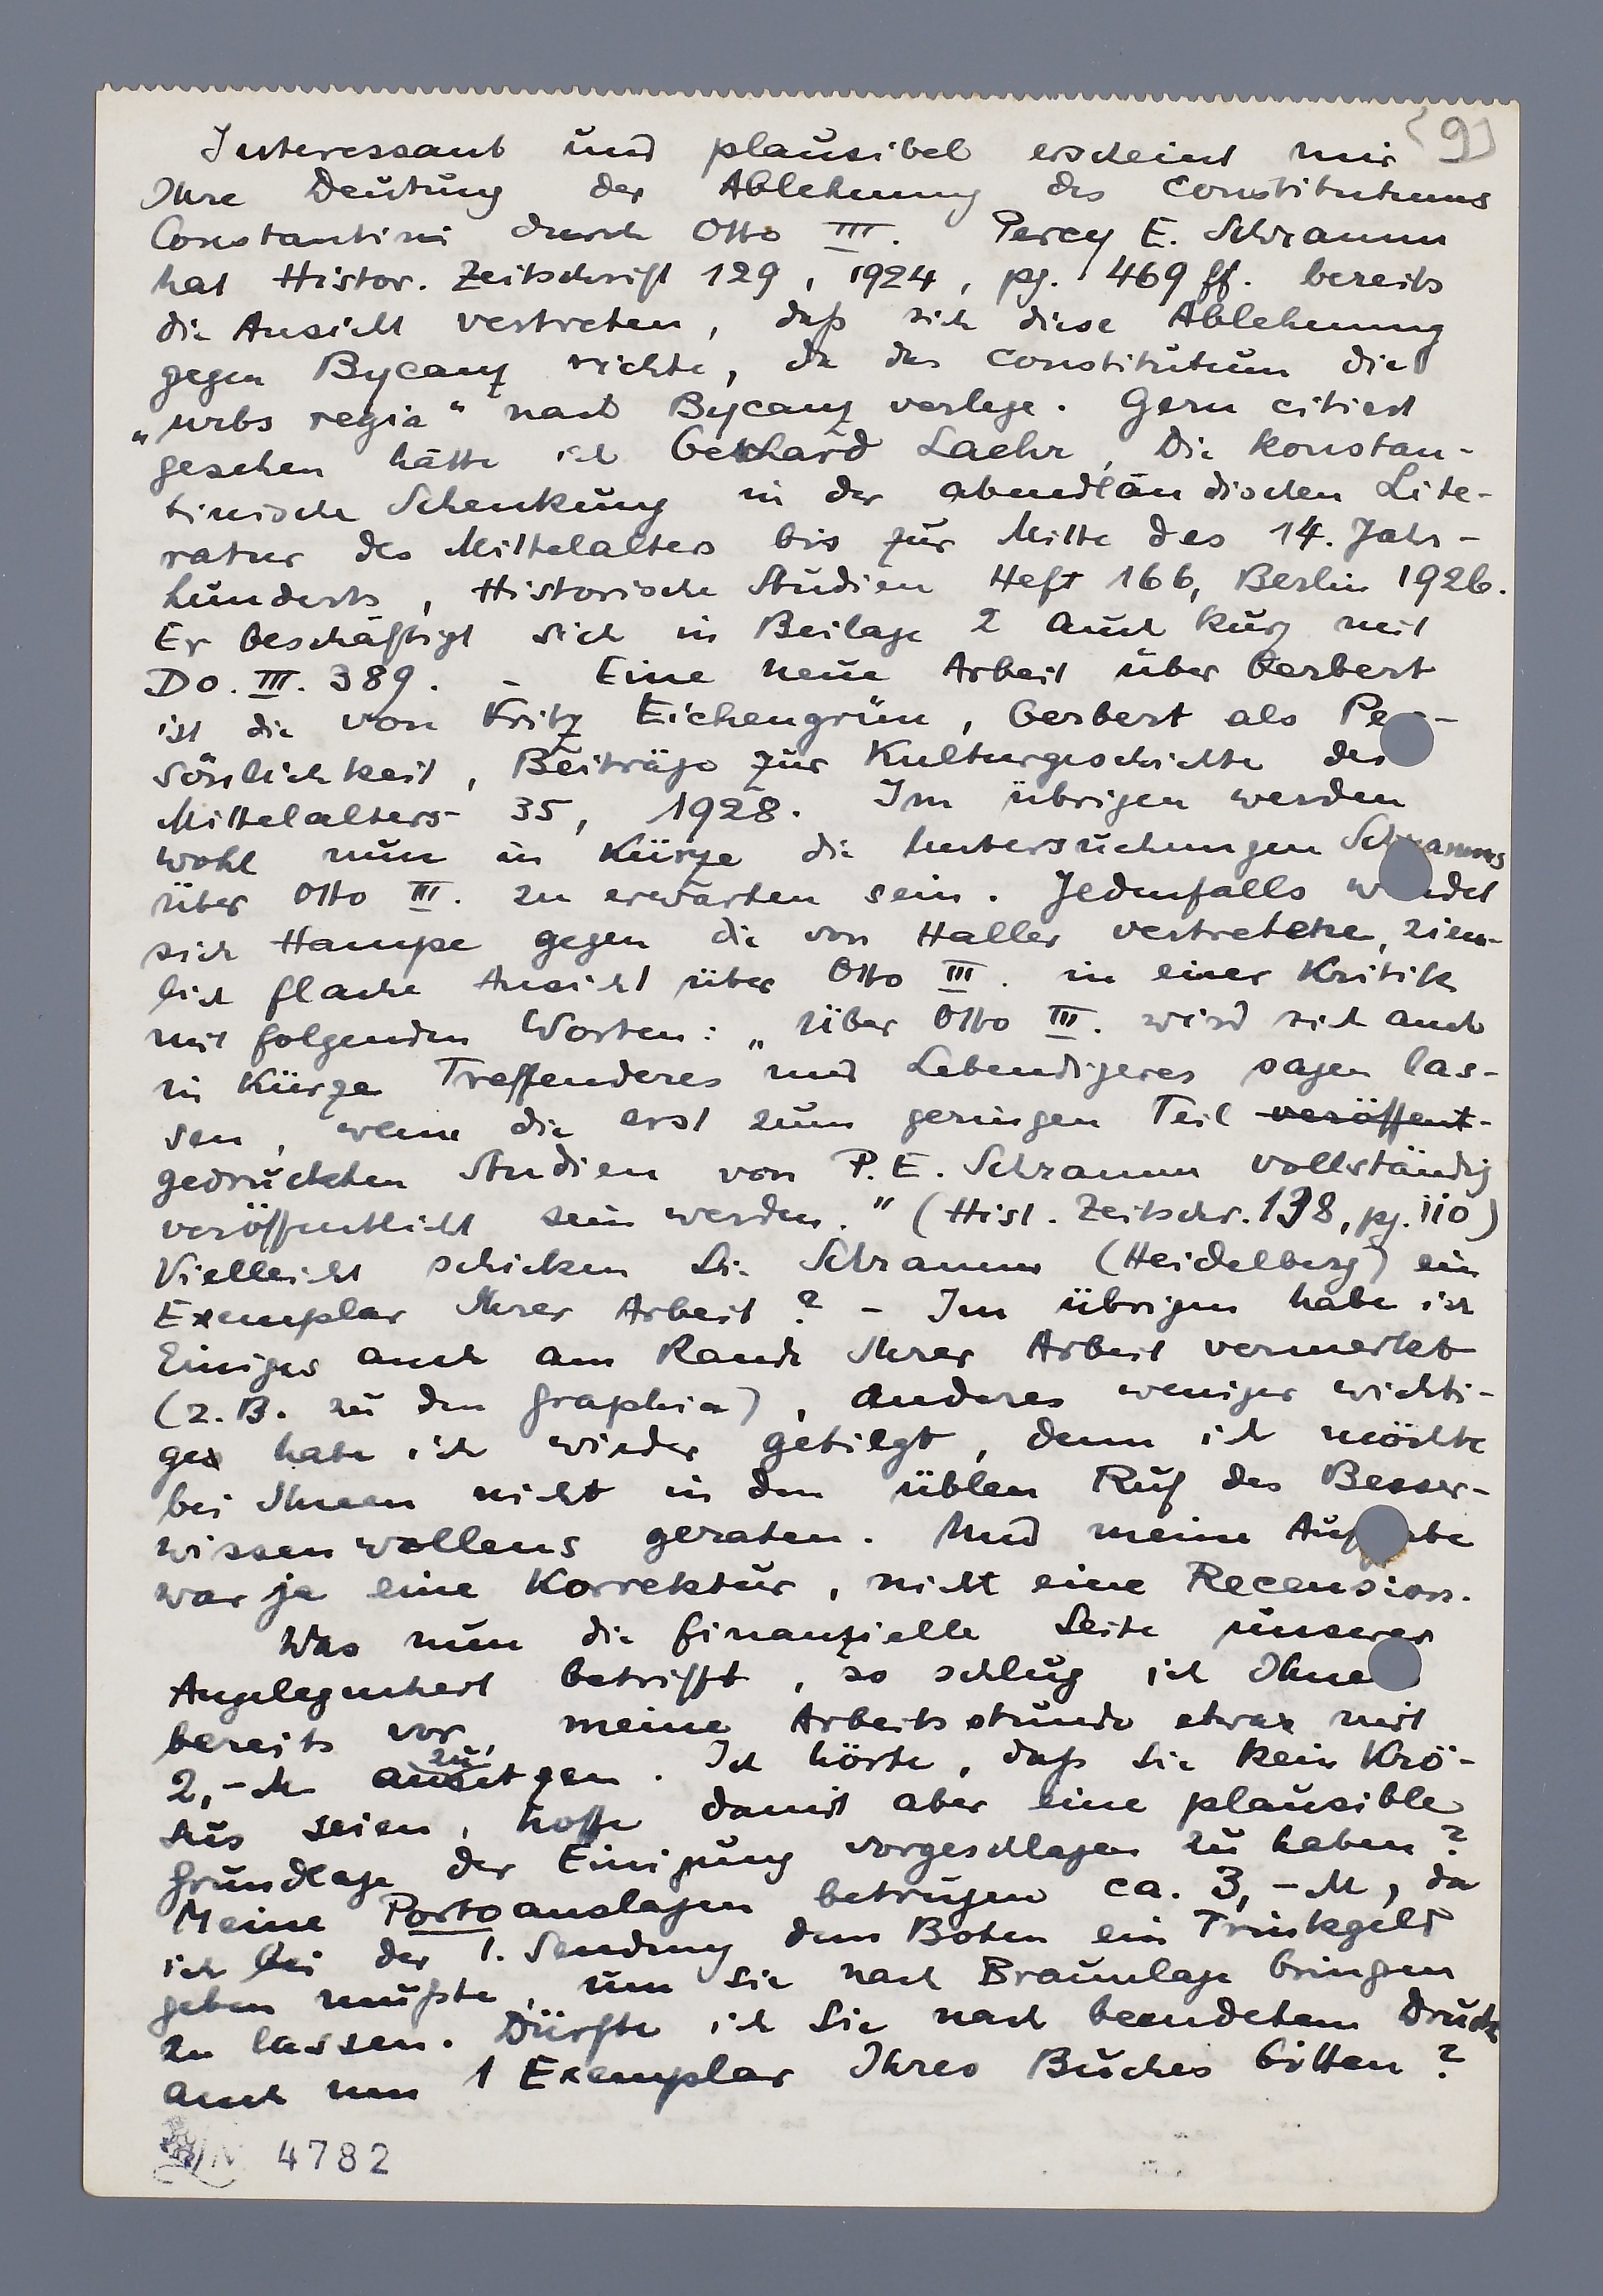 [9]
Interessant und plausibel erscheint mir
Ihre Deutung der Ablehnung des Constitutums
Constantini durch Otto III. Percy E. Schramm
hat Histor. Zeitschrift 129, 1924, pg. 469 ff. bereits
die Ansicht vertreten, daß sich diese Ablehnung
gegen Bycanz richte, da das Constitutum die
„urbs regia" nach Bycanz verlege. Gern citiert
gesehen hätte ich Gerhard Laehr, Die konstan-
tinische Schenkung in der abendländischen Lite-
ratur des Mittelalters bis zur Mitte des 14. Jahr-
hunderts, Historische Studien Heft 166, Berlin 1926.
Er beschäftigt sich in Beilage 2 auch kurz mit
DO. III. 389. - Eine neue Arbeit über Gerbert
ist die von Fritz Eichengrün, Gerbert als Per-
sönlichkeit, Beiträge zur Kulturgeschichte des
Mittelalters 35, 1928. Im übrigen werden
wohl nun in Kürze die Untersuchungen Schramms
über Otto III. zu erwarten sein. Jedenfalls wendet
sich Hampe gegen die von Haller vertretene, ziem-
lich flache Ansicht über Otto III. in einer Kritik
mit folgenden Worten: „Über Otto III. wird sich auch
in Kürze Treffenderes und Lebendigeres sagen las-
sen, wenn die erst zum geringen Teil veröffent-
gedruckten Studien von P. E. Schramm vollständig
veröffentlicht sein werden." (Hist. Zeitschr. 138, pg. 110)
Vielleicht schicken Sie Schramm (Heidelberg) ein
Exemplar Ihrer Arbeit? - Im übrigen habe ich
Einiges auch am Rande Ihrer Arbeit vermerkt
(z. B. zu den Graphia), anderes weniger wichti-
ges habe ich wieder getilgt, denn ich möchte
bei Ihnen nicht in den üblen Ruf des Besser-
wissenwollens geraten. Und meine Aufgabe
war ja eine Korrektur, nicht eine Recension.
Was nun die finanzielle Seite unserer
Angelegenheit betrifft, so schlug ich Ihnen
bereits vor, meine Arbeitsstunde etwa mit
2,- M anzusetzen. Ich hörte, daß Sie kein Krö-
sus seien, hoffe damit aber eine plausible
Grundlage der Einigung vorgeschlagen zu haben?
Meine Portoauslagen betrugen ca. 3,- M, da
ich bei der 1. Sendung dem Boten ein Trinkgeld
geben mußte, um sie nach Braunlage bringen
zu lassen. Dürfte ich Sie nach beendetem Druck
auch um 1 Exemplar Ihres Buches bitten?
4782